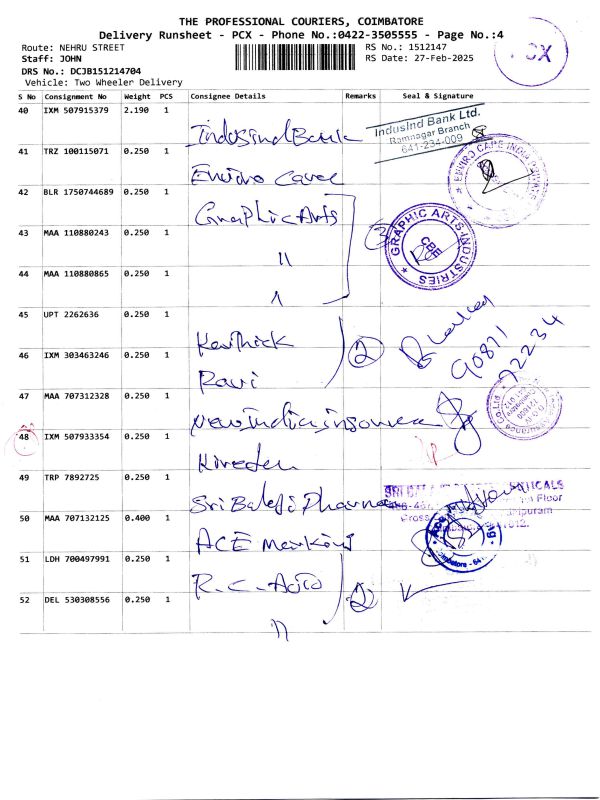 THE PROFESSIONAL COURIERS, COIMBATORE
Delivery Runsheet - PCX - Phone No.:0422-3505555 - Page No.:4
PCX
Route: NEHRU STREET
RS No.: 1512147
Staff: JOHN
RS Date: 27-Feb-2025
DRS No.: DCJB151214704
Vehicle: Two Wheeler Delivery
S No Consignment No Weight PCS Consignee Details Remarks Seal & Signature
40 IXM 507915379 2.190 1
IndusInd Bank
IndusInd Bank Ltd.
Ramnagar Branch
641-234-009
41 TRZ 100115071 0.250 1
Enviro Care
ENVIRO CARE INDIA
42 BLR 1750744689 0.250 1
Graphic Arts
3
GRAPHIC ARTS INDUSTRIES
CBE
43 MAA 110880243 0.250 1
11
44 MAA 110880865 0.250 1
45 UPT 2262636 0.250 1
Karthick
2
90871
72234
46 IXM 303463246 0.250 1
Ravi
47 MAA 707312328 0.250 1
48 IXM 507933354 0.250 1
49 TRP 7892725 0.250 1
Sri Balaji Pharma
50 MAA 707132125 0.400 1
ACE
51 LDH 700497991 0.250 1
R.C. Auto
2
52 DEL 530308556 0.250 1
11